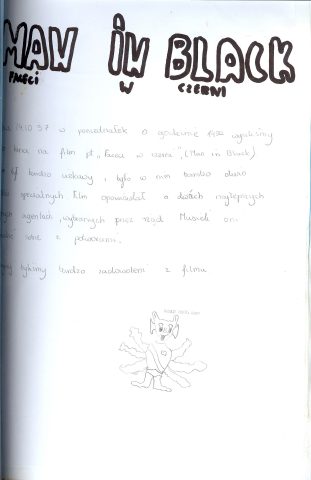 MAN IN BLACK
FACECI W CZERNI
14.10.97 w poniedziałek o godzinie wyszliśmy
kina na film pt „Faceci w czerni" (Man in Black)
bardzo ciekawy i było w nim bardzo dużo
specjalnych film opowiadał o dwóch najlepszych
agentach wybranych przez rząd. Musieli oni
sobie z potworami.
byliśmy bardzo zadowoleni z filmu